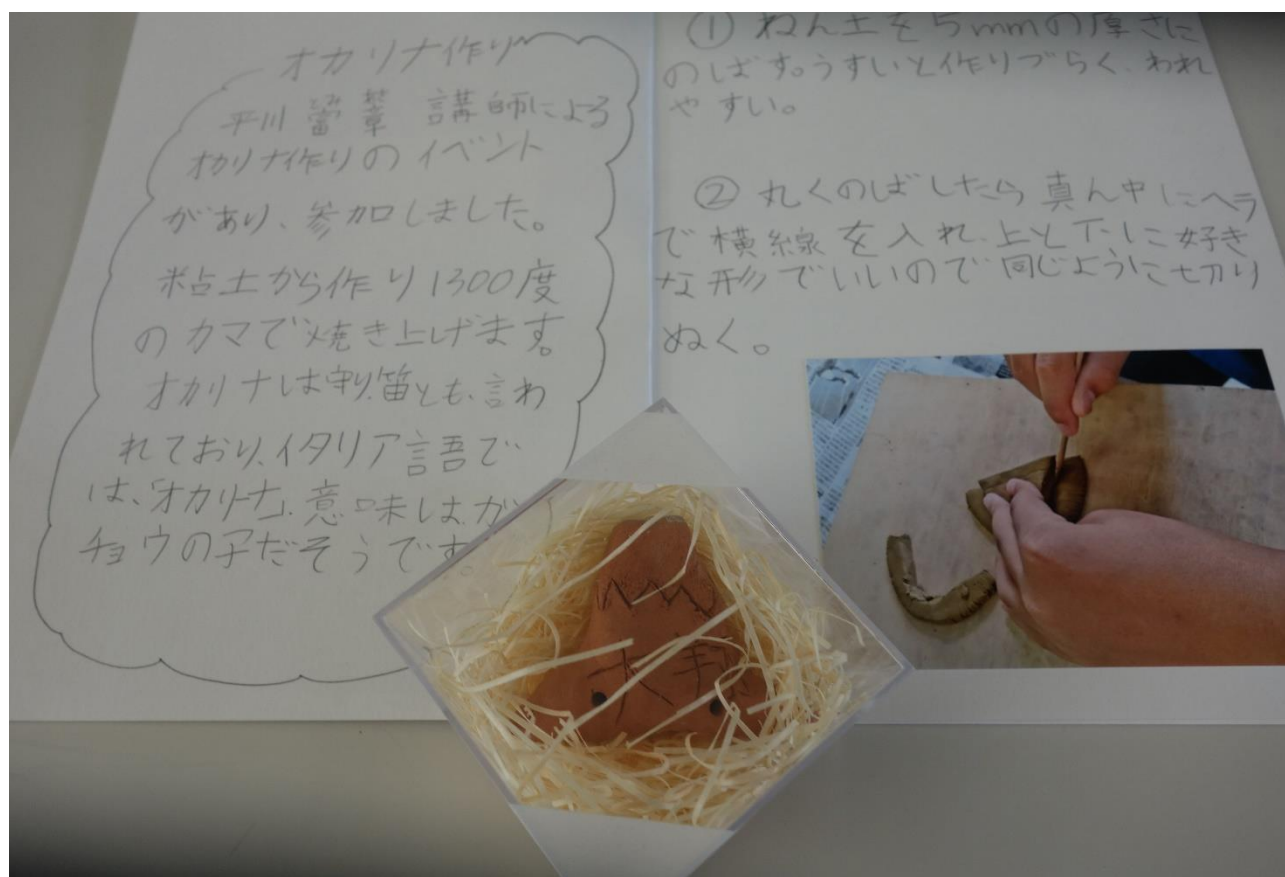 オカリナ作り
平川 講師による
オカリナ作りのイベント
があり、参加しました。
粘土から作り1300度
のカマで焼き上げます。
オカリナは守り笛とも、言わ
れており、イタリア言語で
は、「オカリーナ」、意味は、が
チョウの子だそうです。
① ねん土を5mmの厚さに
のばす。うすいと作りづらく、われ
やすい。
② 丸くのばしたら真ん中にヘラ
で横線を入れ、上と下に好き
な形でいいので同じように切り
ぬく。